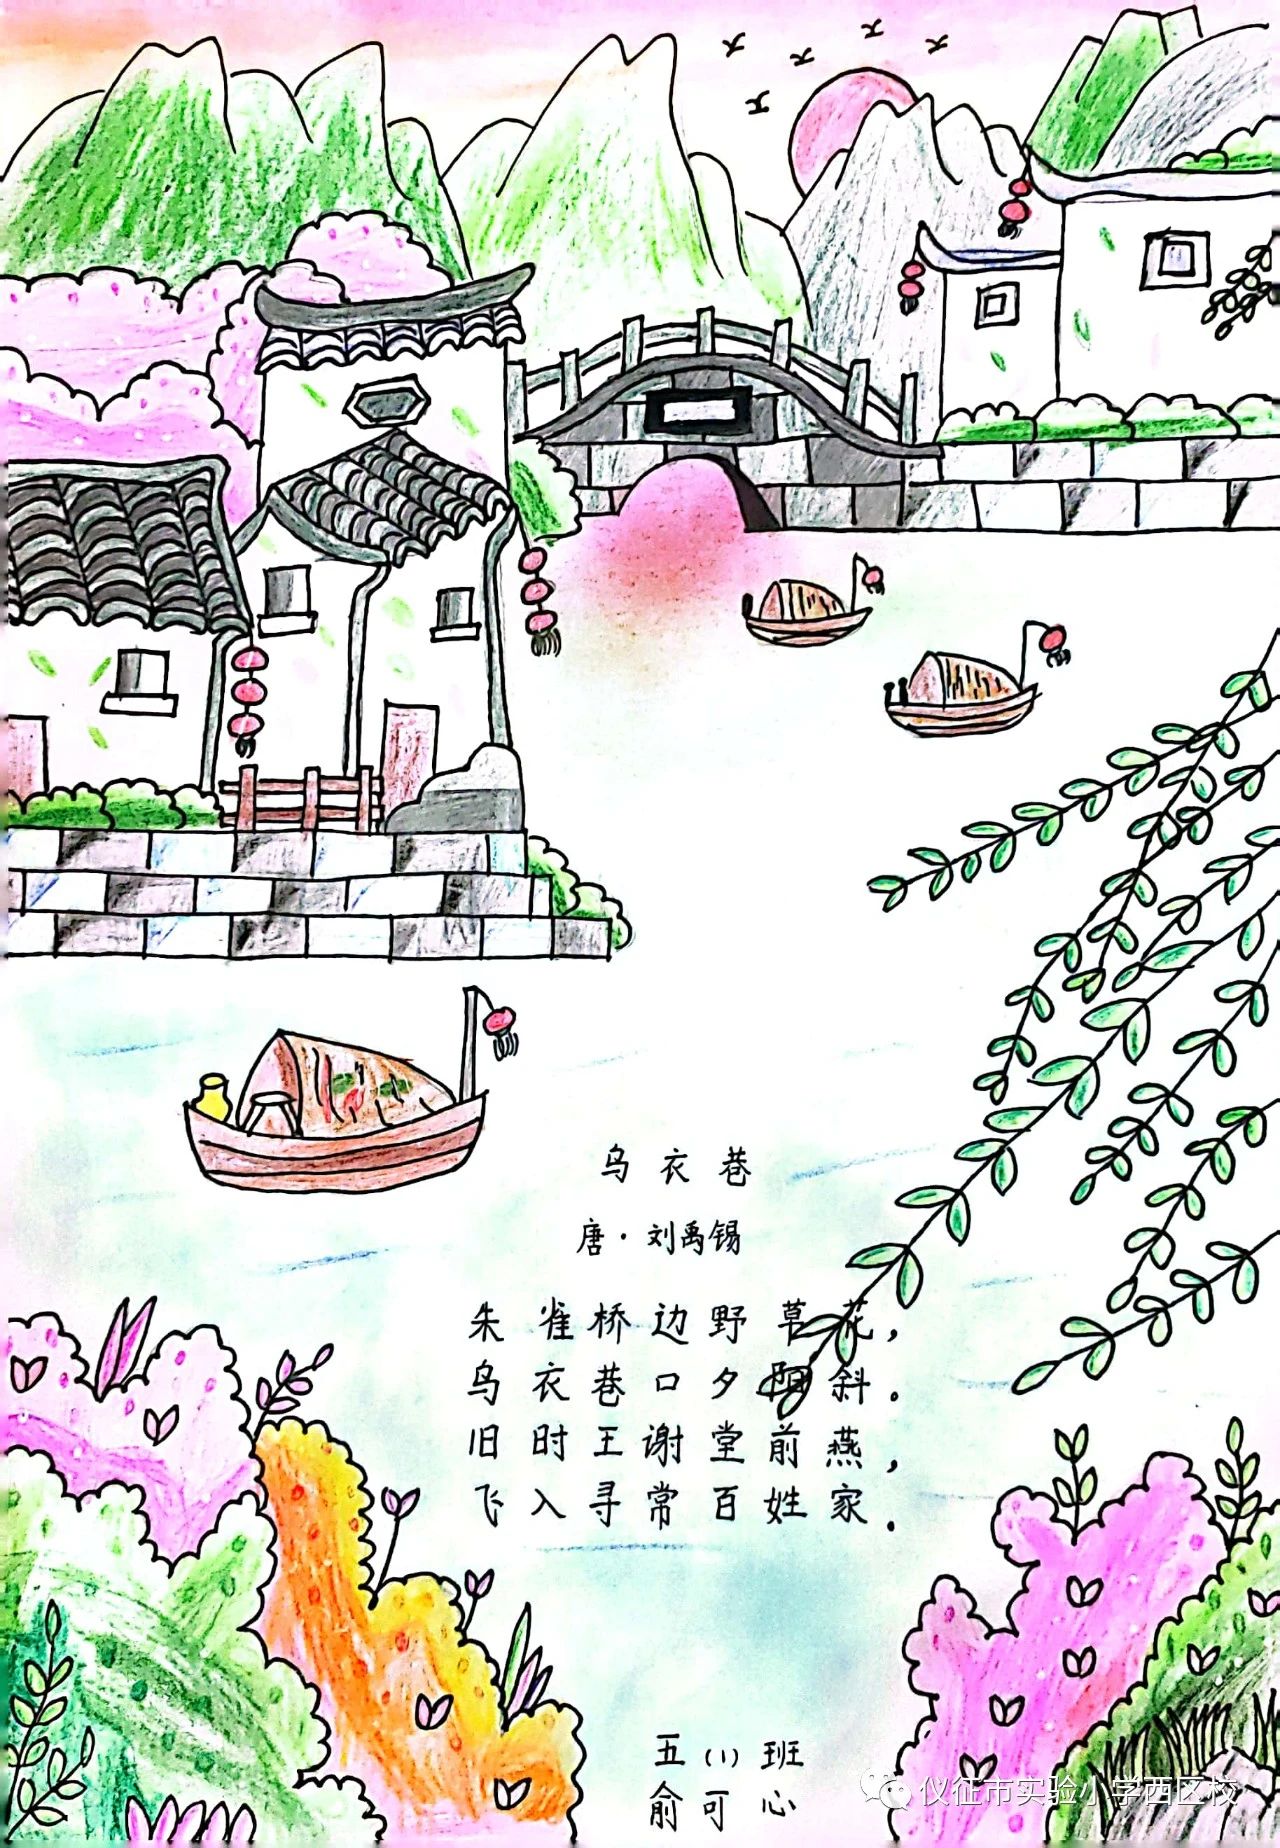 乌衣巷
唐·刘禹锡
朱雀桥边野草花，
乌衣巷口夕阳斜.
旧时王谢堂前燕，
飞入寻常百姓家.
五(1)班
俞可心
仪征市实验小学西区校